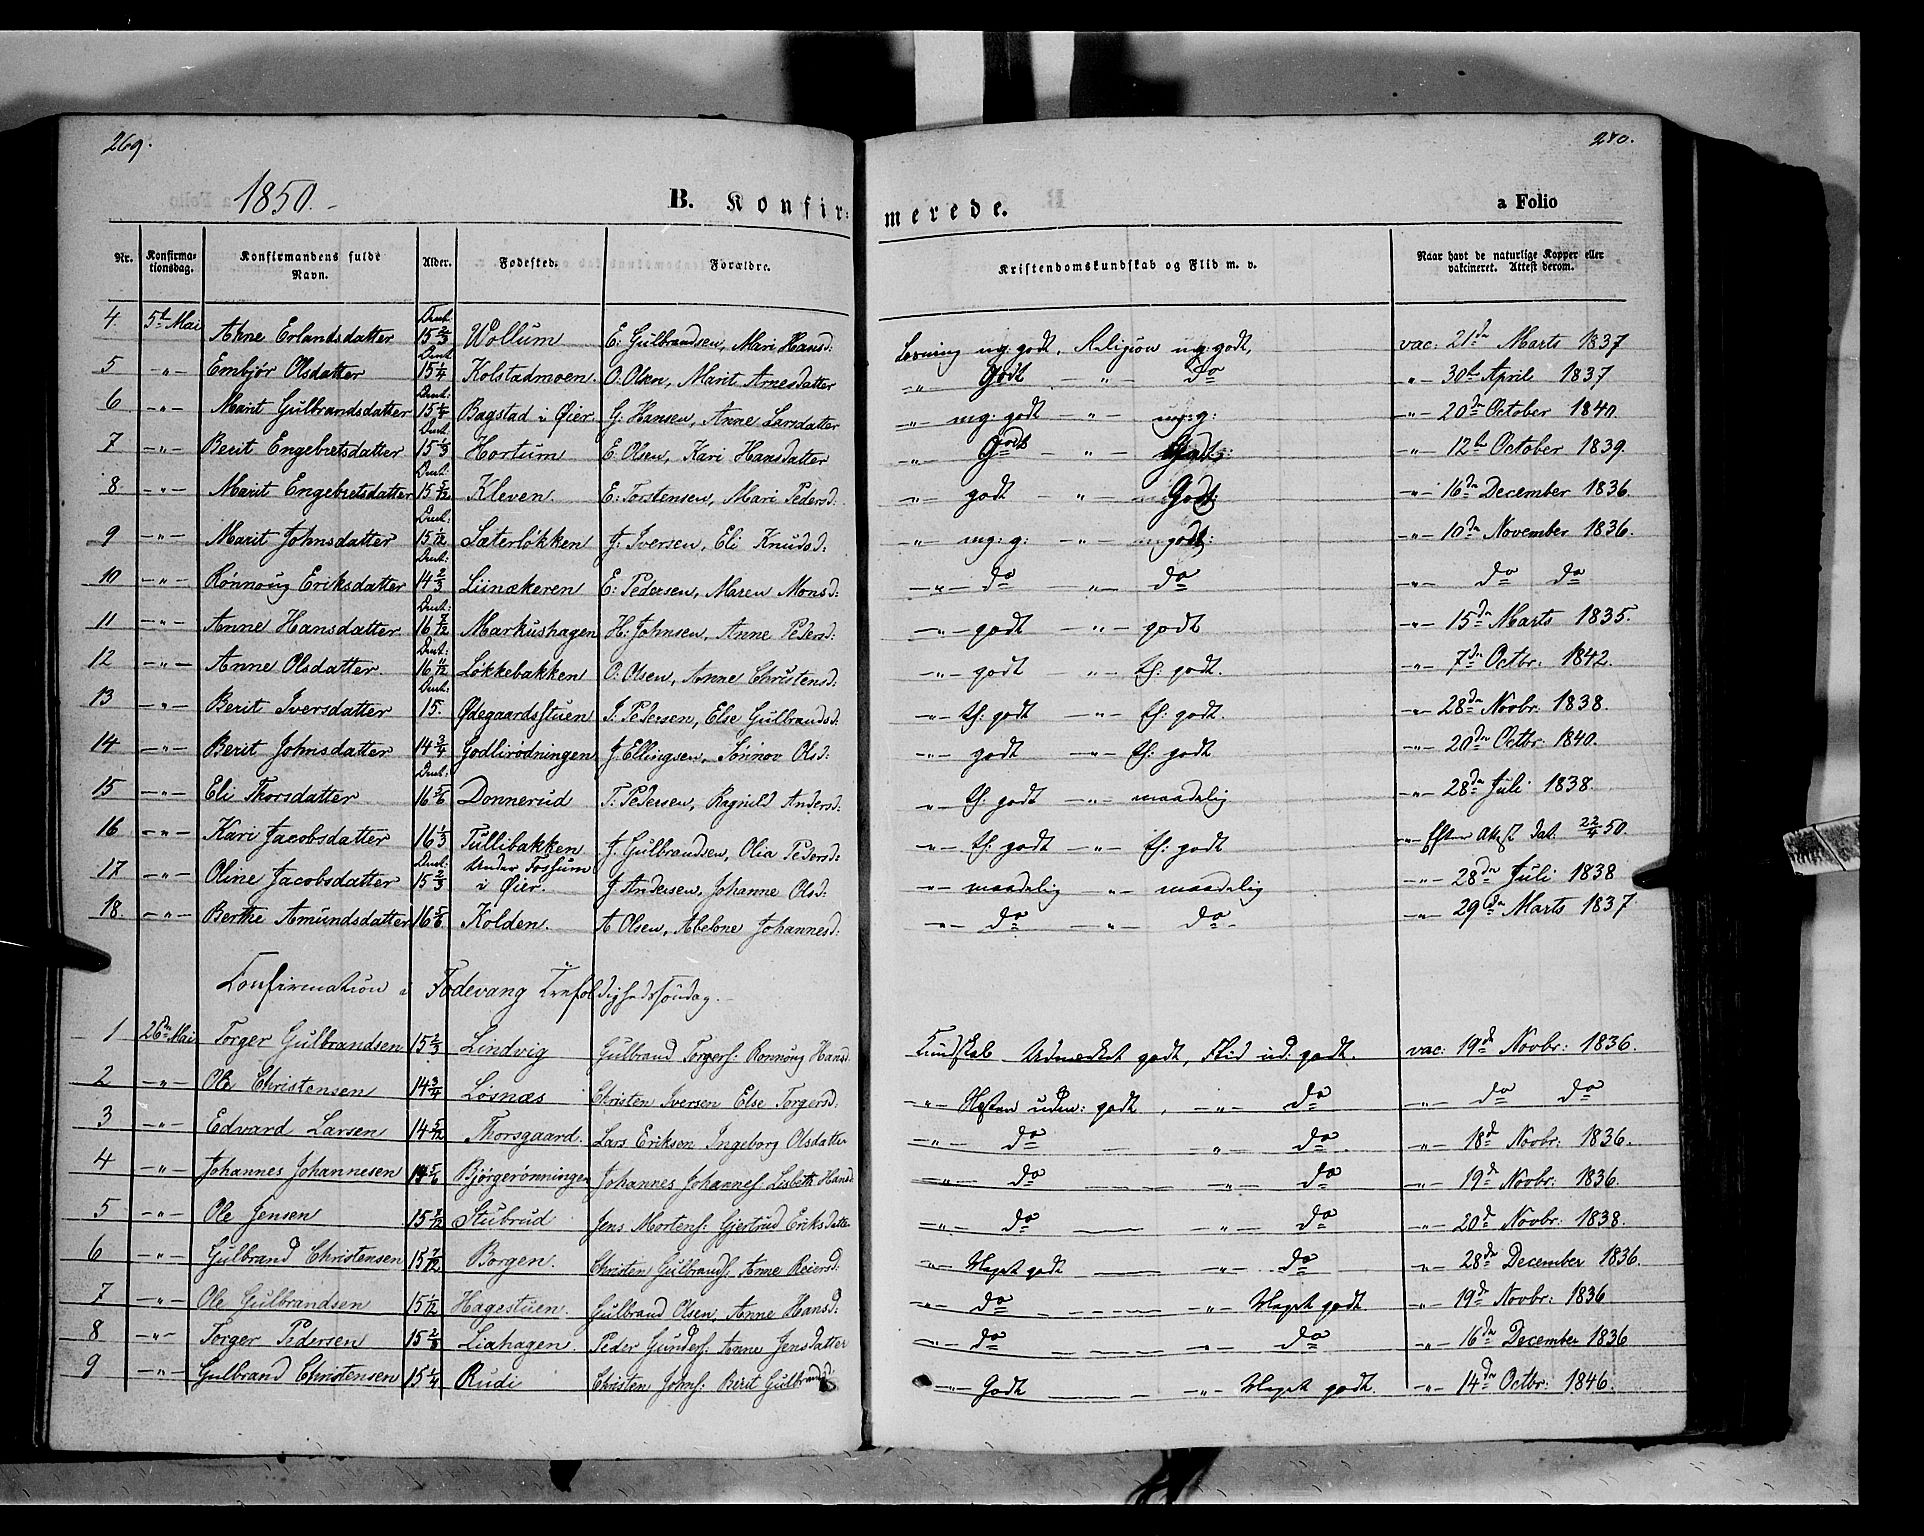 269.
270.
1850.
B. Konfir-
merede.
a Folio
Nr. Konfirma-tionsdag. Konfirmandens fulde Navn. Alder. Fødested. Forældre. Kristendomskundskab og Flid m. v. Naar havt de naturlige Kopper eller vakcineret. Attest derom.
4. 5te Mai Ahne Erlandsdatter 15 2/3 Wollum E: Gulbrandsen, Mari Hansd: Læsning mg: godt, Religion mg: godt, vac: 21de Marts 1837
5 -"- Embjør Olsdatter 15 1/4 Kolstadmoen. O: Olsen, Marit Arnesdatter -"- Godt -"- do -"- 30te April 1837
6 -"- Marit Gulbrandsdatter Bagstad i Øier G: Hansen, Anne Larsdatter -"- mg: godt -"- mg: g: -"- 20de October 1840.
7 -"- Berit Engebretsdatter 15 1/3 Hortum E: Olsen, Kari Hansdatter -"- Godt -"- Godt: -"- 12te October 1839.
8 -"- Marit Engebretsdatter 15 5/12 Kleven. E: Torstensen, Mari Pedersd: -"- godt -"- Godt: -"- 16de December 1836.
9 -"- Marit Johnsdatter 15 1/12 Sæterløkken J: Iversen, Eli Knudsd: -"- mg: g: -"- godt: -"- 10de November 1836.
10 -"- Rønnoug Eriksdatter 14 2/3 Liinækeren E: Pedersen, Maren Monsd: -"- do -"- do -"- do do
11 -"- Anne Hansdatter 16 7/12 Markushagen H: Johnsen, Anne Pedersd: -"- godt -"- godt -"- 15de Marts 1835.
12 -"- Anne Olsdatter. 16 11/12 Løkkebakken O: Olsen, Anne Christensd: -"- godt -"- tf: godt. -"- 7de Octbr: 1842.
13 -"- Berit Iversdatter 15. Ødegaardsstuen I: Pedersen, Else Gulbrandsd: -"- tf: godt -"- tf: godt. -"- 28de Novbr: 1838.
14 -"- Berit Johnsdatter 14 3/4 Godlirodningen J: Ellingsen, Sønnov Olsd: -"- godt -"- tf: godt -"- 20de Octbr: 1840.
15 -"- Eli Thorsdatter 16 5/6 Donnerud T: Pedersen, Ragnild Andersd: -"- tf: godt -"- maadelig -"- 28de Juli 1838.
16 -"- Kari Jacobsdatter 16 1/3 Tullibakken J: Gulbrandsen, Olia Pedersd: -"- tf: godt -"- tf: godt -"- Efter Attest dat: 22/4 50.
17 -"- Oline Jacobsdatter 15 2/3 Under Fossum i Øier. J: Andersen, Johanne Olsd: -"- maadelig -"- maadelig -"- 28de Juli 1838
18 -"- Berthe Amundsdatter 16 5/6 Kolden. A Olsen, Abelone Johannesd: -"- do -"- do -"- 29de Marts 1837.
Confirmation i Fodevang Trefoldighedssøndag.
1 26de Mai Torger Gulbrandsen 15 2/3 Lindvig Gulbrand Torgers: Ronnoug Hansd: Kundskab Udmærket godt, Flid ud. godt. vac: 19de Novbr: 1836.
2 -"- Ole Christensen 14 3/4 Losnæs Christen Iversen Else Torgersd: -"- Næsten udm: godt, -"- do -"- do do
3 -"- Edvard Larsen 14 5/12 Thorsgaard. Lars Eriksen Ingeborg Olsdatter -"- do -"- do -"- 18de Novbr: 1836.
4 -"- Johannes Johannesen 14 5/6 Bjørgerønningen Johannes Johannes: Lisbeth Hansd: -"- do -"- do -"- 19de Novbr: 1836.
5 -"- Ole Jensen 15 7/12 Stubrud Jens Mortens: Gjertrud Eriksdatter -"- do -"- do -"- 20de Novbr: 1838.
6 -"- Gulbrand Christensen 15 7/12 Borgen. Christen Gulbrands: Anne Reiersd: -"- Meget godt -"- do -"- 28de December 1836.
7 -"- Ole Gulbrandsen 15 1/12 Hagestuen. Gulbrand Olsen, Anne Hansd: -"- do -"- Meget godt -"- 19de Novbr: 1836
8 -"- Torger Pedersen 15 2/3 Liahagen. Peder Gunders: Anne Jensdatter -"- do do -"- 16de December 1836
9 -"- Gulbrand Christensen 15 1/4 Rudi Christen Johns: Berit Gulbrandsd: -"- Godt -"- Meget godt. -"- 14de Octbr: 1846.